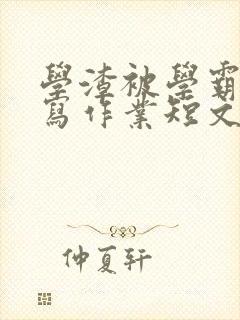 學渣被學霸
寫作業短文
仲夏軒